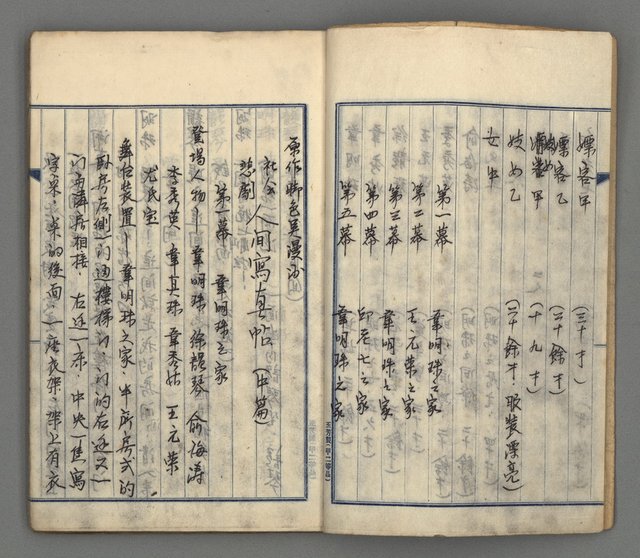 嫖客甲 （三十才）
嫖客乙 （二十餘才）
妓女甲 （十九才）
妓女乙 （二十餘才·服裝漂亮）
女中
第一幕 韋明珠之家
第二幕 王元榮之家
第三幕 韋明珠之家
第四幕 邱老七之家
第五幕 韋明珠之家
原作脚色吳漫沙
社会悲劇 人间寫真帖（中篇）
第一幕 韋明珠之家
登場人物 韋明珠 徐韻琴 俞海濤
李秀英 韋其珠 韋秀姑 王元榮
尤氏宝
舞台装置—韋明珠之家·半新房式的
臥房左側一门通樓梯门·门的右边又一
门与隣房相接·左边一床·中央一隻寫
字桌·桌的後面·一座衣架·架上有衣